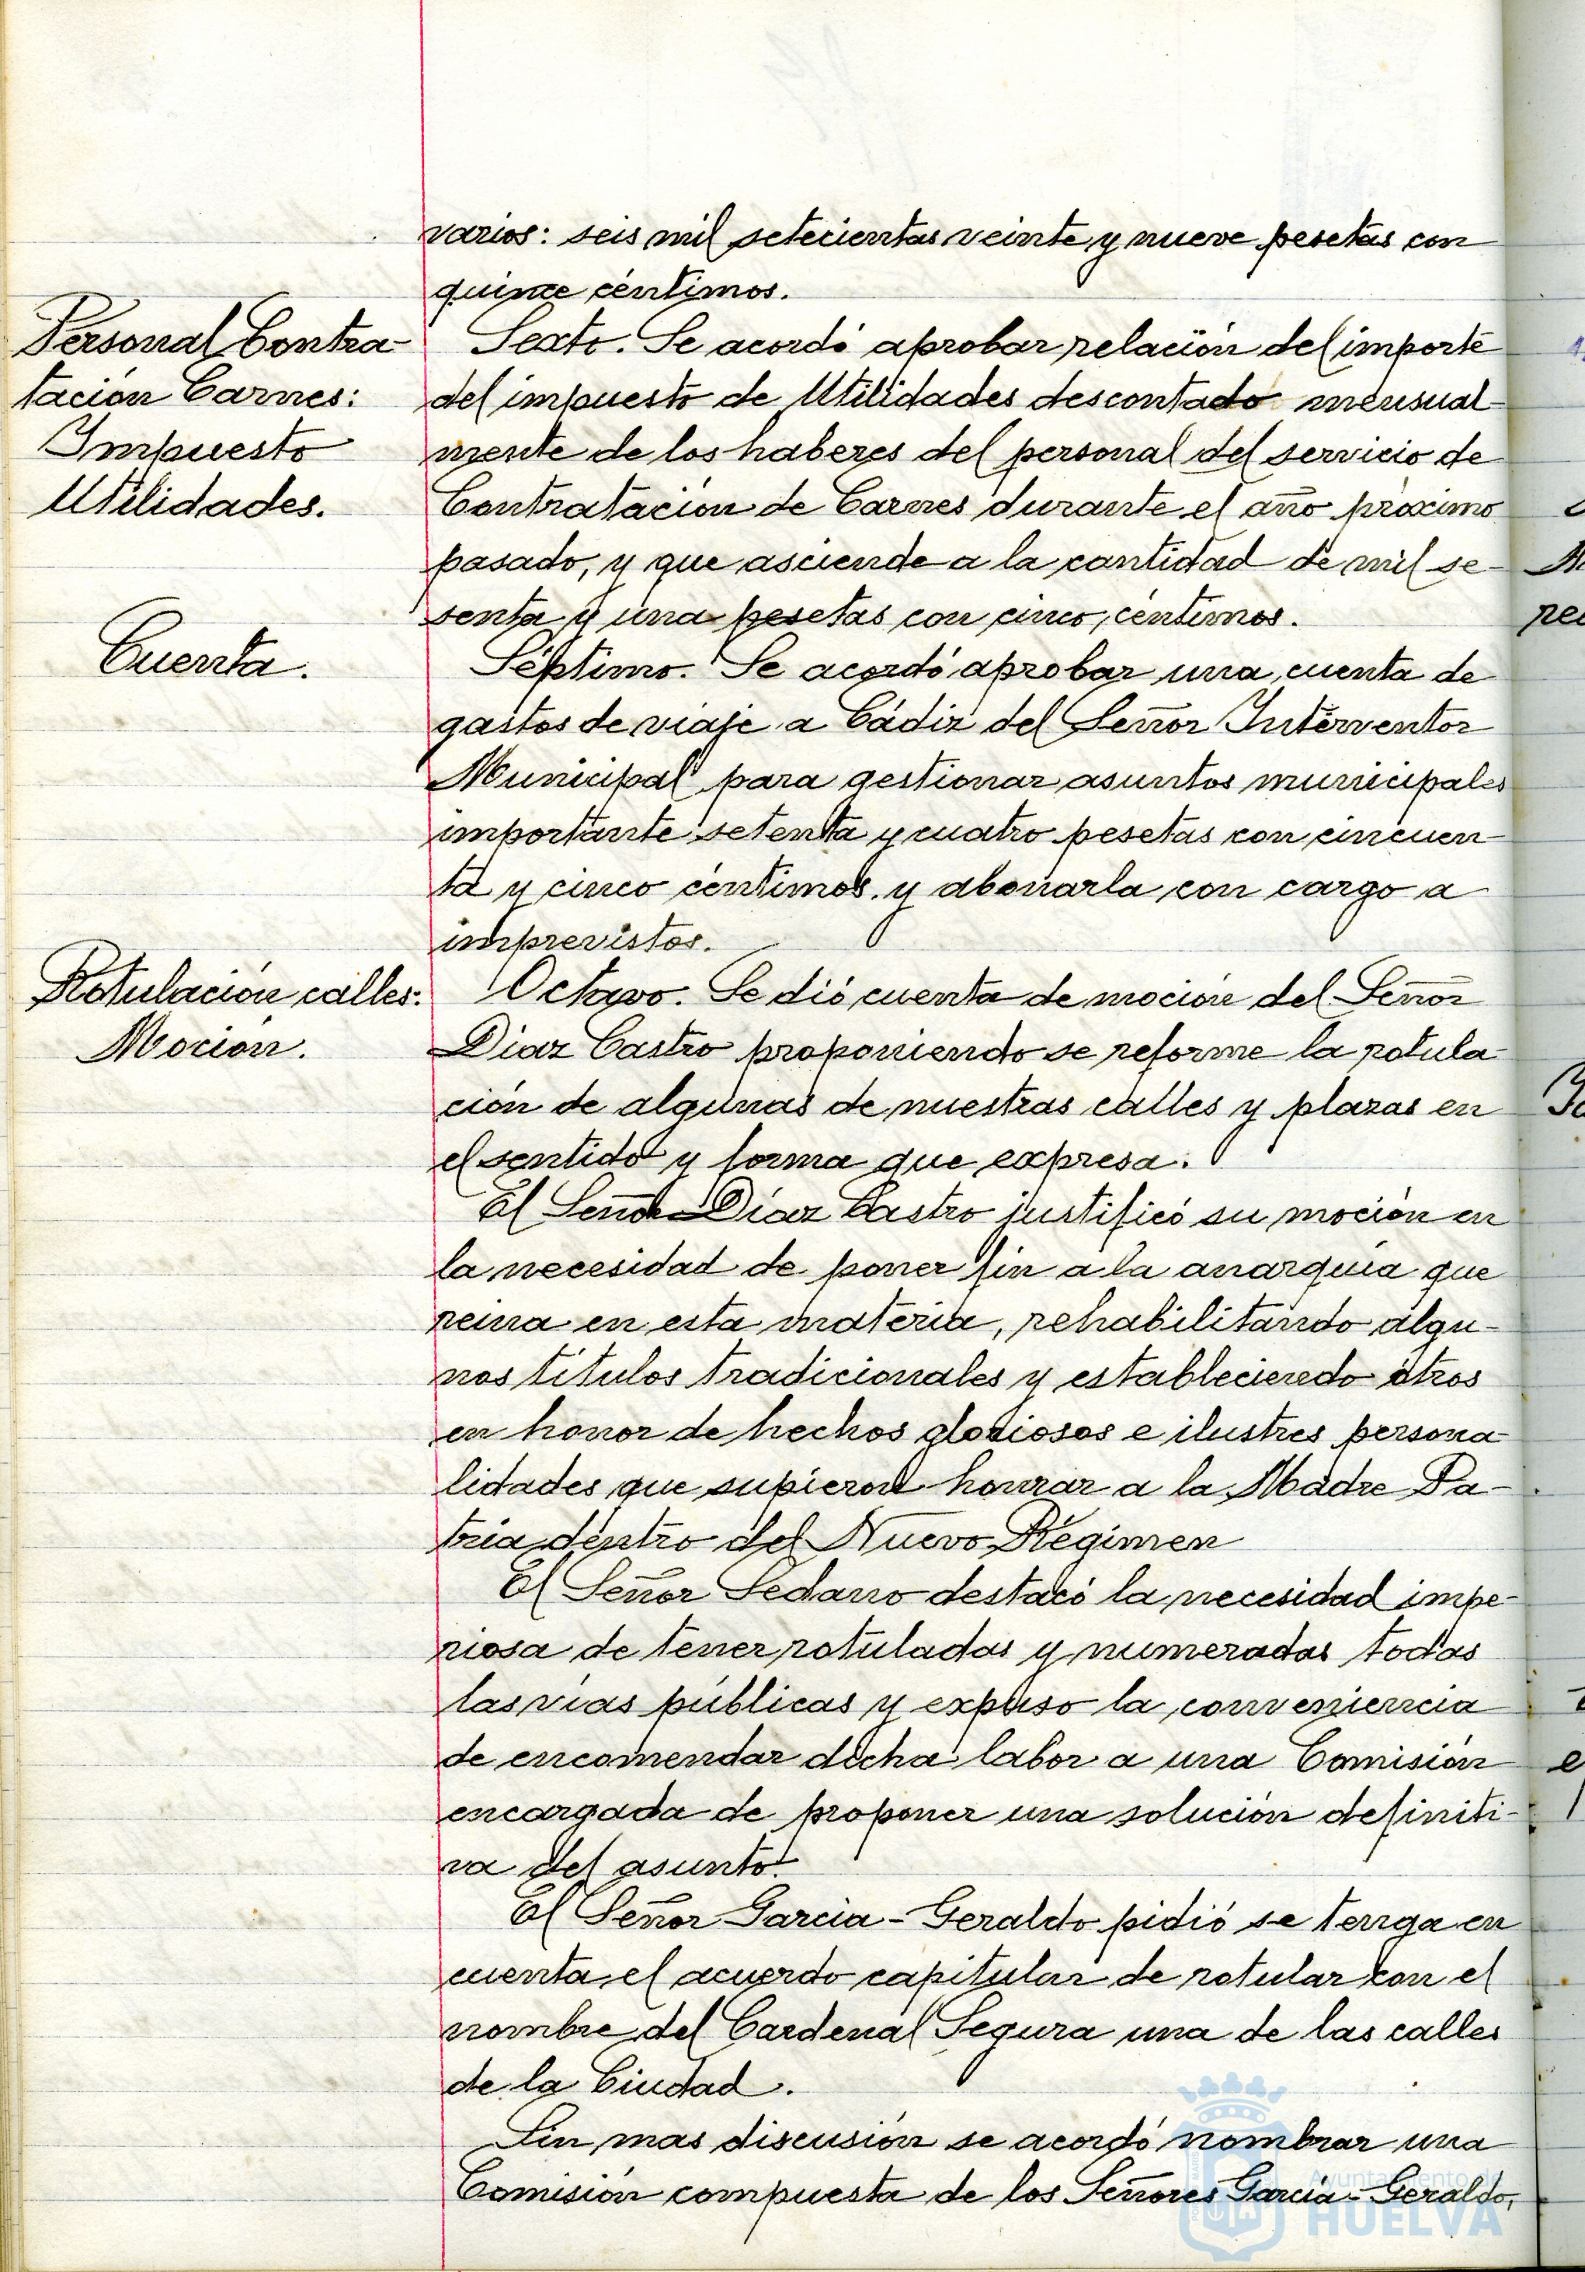 varios: seis mil setecientas veinte y nueve pesetas con
quince céntimos.
Personal Contra-
tación Carnes:
Impuesto
Utilidades.
Sexto. Se acordó aprobar relación del importe
del impuesto de Utilidades descontado mensual-
mente de los haberes del personal del servicio de
Contratación de Carnes durante el año próximo
pasado, y que asciende a la cantidad de mil se-
senta y una pesetas con cinco céntimos.
Cuenta.
Séptimo. Se acordó aprobar una cuenta de
gastos de viaje a Cádiz del Señor Interventor
Municipal para gestionar asuntos municipales
importante setenta y cuatro pesetas con cincuen-
ta y cinco céntimos y abonarla con cargo a
imprevistos.
Rotulación calles:
Moción.
Octavo. Se dió cuenta de moción del Señor
Díaz Castro proponiendo se reforme la rotula-
ción de algunas de nuestras calles y plazas en
el sentido y forma que expresa.
El Señor Díaz Castro justificó su moción en
la necesidad de poner fin a la anarquía que
reina en esta materia, rehabilitando algu-
nos títulos tradicionales y estableciendo otros
en honor de hechos gloriosos e ilustres persona-
lidades que supieron honrar a la Madre Pa-
tria dentro del Nuevo Régimen
El Señor Sedano destacó la necesidad impe-
riosa de tener rotuladas y numeradas todas
las vías públicas y expuso la conveniencia
de encomendar dicha labor a una Comisión
encargada de proponer una solución definiti-
va del asunto.
El Señor García-Geraldo pidió se tenga en
cuenta el acuerdo capitular de rotular con el
nombre del Cardenal Segura una de las calles
de la Ciudad.
Sin mas discusión se acordó nombrar una
Comisión compuesta de los Señores García-Geraldo,
Ayuntamiento de
HUELVA